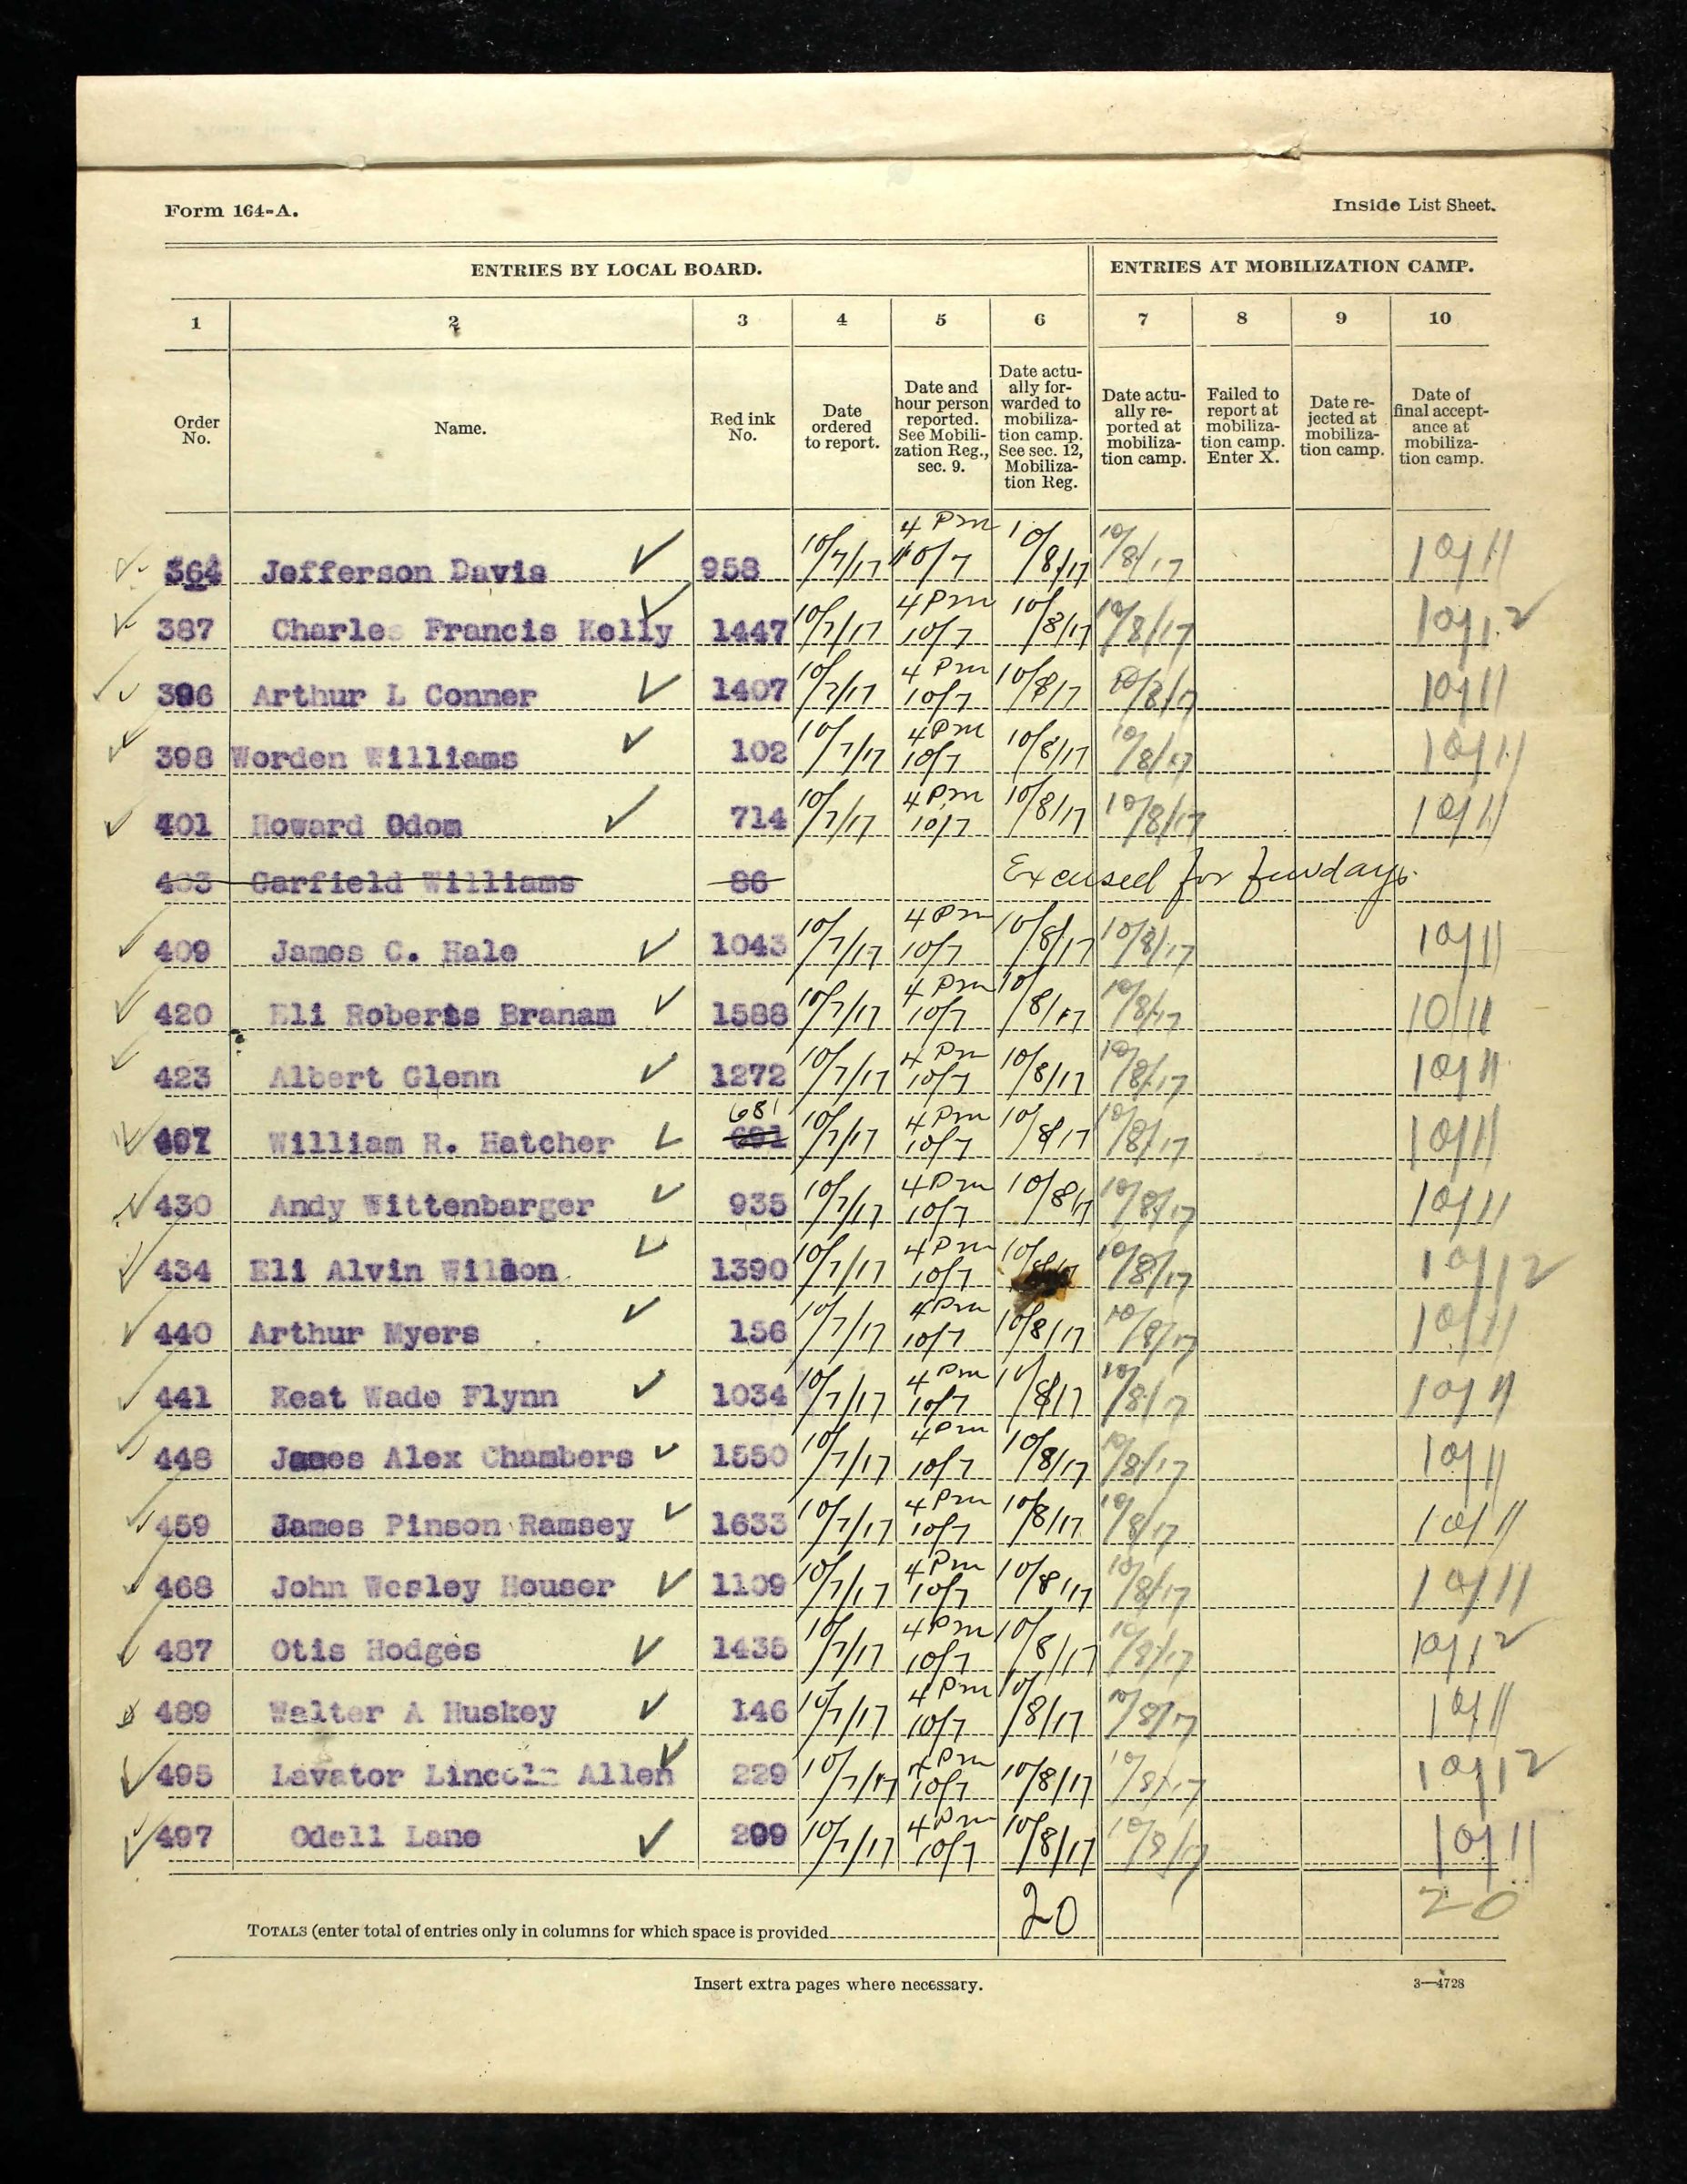 Form 164-A. Inside List Sheet.
ENTRIES BY LOCAL BOARD. ENTRIES AT MOBILIZATION CAMP.
1 2 3 4 5 6 7 8 9 10
Order No. Name. Red ink No. Date ordered to report. Date and hour person reported. See Mobilization Reg., sec. 9. Date actually forwarded to mobilization camp. See sec. 12, Mobilization Reg. Date actually reported at mobilization camp. Failed to report at mobilization camp. Enter X. Date rejected at mobilization camp. Date of final acceptance at mobilization camp.
364 Jefferson Davis 958 10/7/17 4 Pm 10/7 10/8/17 10/8/17 10/11
387 Charles Francis Kelly 1447 10/7/17 4 Pm 10/7 10/8/17 10/8/17 10/12
396 Arthur L Conner 1407 10/7/17 4 Pm 10/7 10/8/17 10/8/17 10/11
398 Worden Williams 102 10/7/17 4 Pm 10/7 10/8/17 10/8/17 10/11
401 Howard Odom 714 10/7/17 4 Pm 10/7 10/8/17 10/8/17 10/11
403 Garfield Williams 86 Excused for few days.
409 James C. Hale 1043 10/7/17 4 Pm 10/7 10/8/17 10/8/17 10/11
420 Eli Roberts Branam 1588 10/7/17 4 Pm 10/7 10/8/17 10/8/17 10/11
423 Albert Glenn 1272 10/7/17 4 Pm 10/7 10/8/17 10/8/17 10/11
William R. Hatcher 681 10/7/17 4 Pm 10/7 10/8/17 10/8/17 10/11
430 Andy Wittenbarger 935 10/7/17 4 Pm 10/7 10/8/17 10/8/17 10/11
434 Eli Alvin Wilson 1390 10/7/17 4 Pm 10/7 10/8/17 10/8/17 10/12
440 Arthur Myers 156 10/7/17 4 Pm 10/7 10/8/17 10/8/17 10/11
441 Keat Wade Flynn 1034 10/7/17 4 Pm 10/7 10/8/17 10/8/17 10/11
448 James Alex Chambers 1550 10/7/17 4 Pm 10/7 10/8/17 10/8/17 10/11
459 James Pinson Ramsey 1633 10/7/17 4 Pm 10/7 10/8/17 10/8/17 10/11
468 John Wesley Houser 1109 10/7/17 4 Pm 10/7 10/8/17 10/8/17 10/11
487 Otis Hodges 1435 10/7/17 4 Pm 10/7 10/8/17 10/8/17 10/12
489 Walter A Huskey 146 10/7/17 4 Pm 10/7 10/8/17 10/8/17 10/11
495 Lavator Lincoln Allen 229 10/7/17 4 Pm 10/7 10/8/17 10/8/17 10/12
497 Odell Lane 299 10/7/17 4 Pm 10/7 10/8/17 10/8/17 10/11
TOTALS (enter total of entries only in columns for which space is provided 20 20
Insert extra pages where necessary. 3—4728